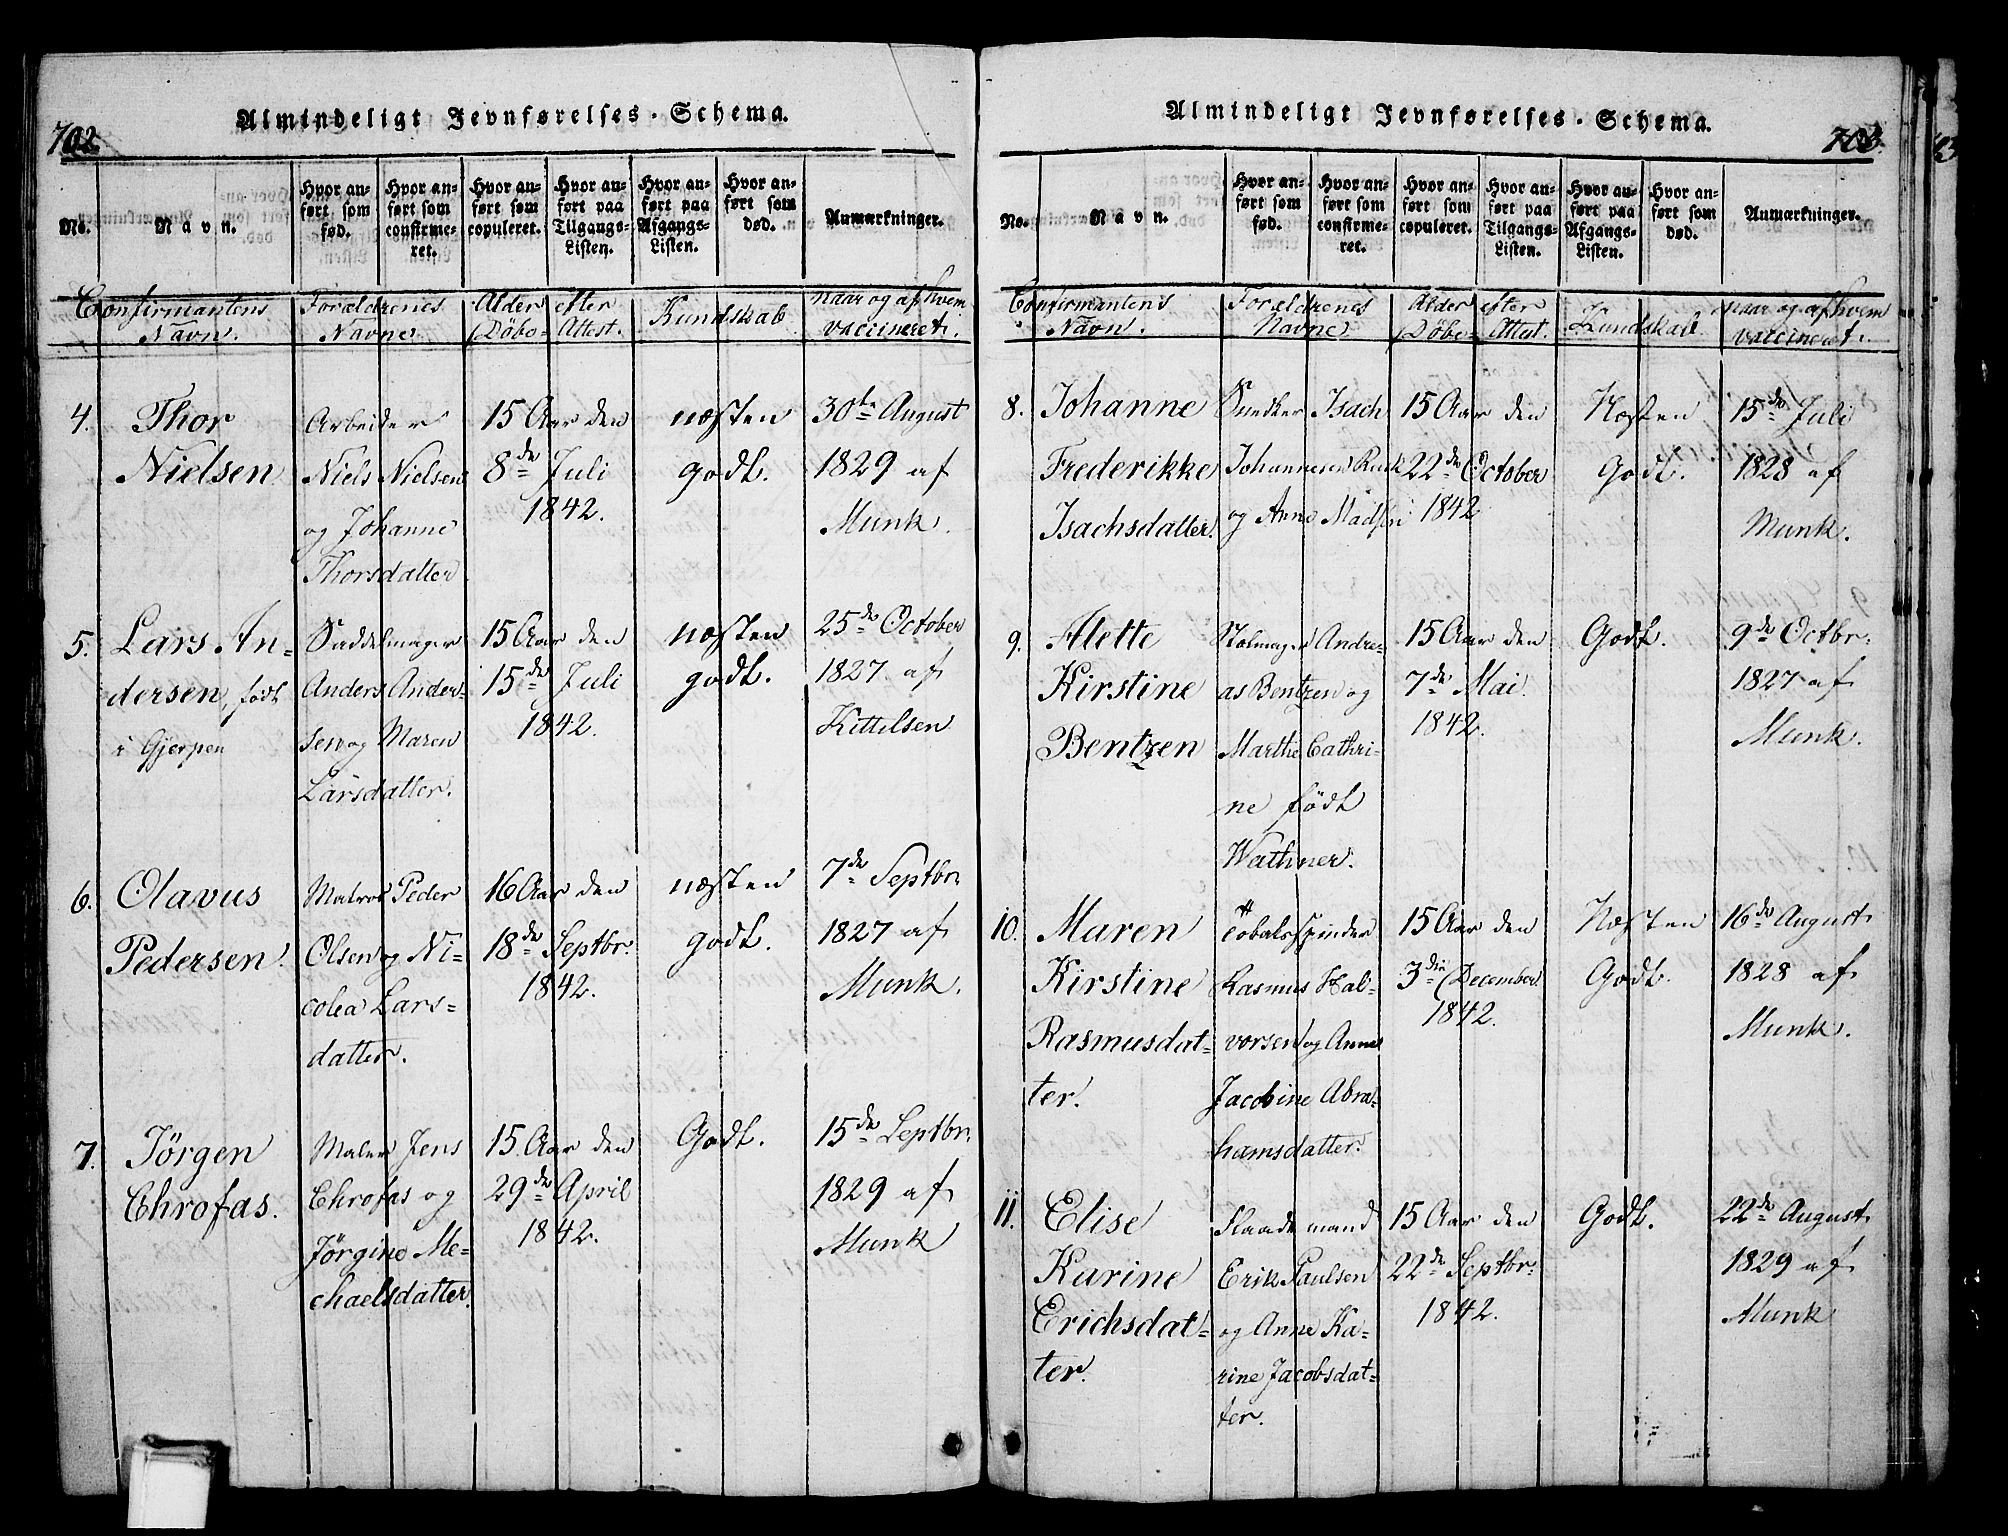 702.
Almindeligt Jevnførelses-Schema.
No.
Navn.
Hvor an-
ført som
fød.
Hvor an-
ført som
confirme-
ret.
Hvor an-
ført som
copuleret.
Hvor an-
ført paa
Tilgangs-
Listen.
Hvor an-
ført paa
Afgangs-
Listen.
Hvor an-
ført som
død.
Anmærkninger.
Confirmantens
Navn.
Forældrenes
Navne
Alder efter
Døbe-Attest.
Kundskab
naar og af hvem
vaccineret.
4.
Thor
Nielsen
Arbeider
Niels Nielsen
og Johanne
Thorsdatter
15 Aar den
8de Juli
1842.
næsten
godt.
30te August
1829 af
Munk.
5.
Lars An-
dersen, født
i Gjerpen
Saddelmager
Anders Ander-
sen og Maren
Larsdatter.
15 Aar den
15de Juli
1842.
næsten
godt.
25de October
1827 af
Kittilsen
6.
Olavus
Pedersen.
Matros Peder
Olsen og Ni-
colea Lars-
datter.
16 Aar den
18de Septbr.
1842.
næsten
godt.
7de Septbr.
1827 af
Munk.
7.
Jörgen
Chrofas.
Maler Jens
Chrofas og
Jörgine Me-
chaelsdatter.
15 Aar den
29de April
1842.
Godt.
15de Septbr.
1829 af
Munk
703.
Almindeligt Jevnførelses-Schema.
No.
Navn.
Hvor an-
ført som
fød.
Hvor an-
ført som
confirme-
ret.
Hvor an-
ført som
copuleret.
Hvor an-
ført paa
Tilgangs-
Listen.
Hvor an-
ført paa
Afgangs-
Listen.
Hvor an-
ført som
død.
Anmærkninger.
Confirmantens
Navn.
Forældrenes
Navne
Alder efter
Døbe-Attest.
Kundskab
naar og af hvem
vaccineret.
8.
Johanne
Frederikke
Isachsdatter.
Snedker Isach
Johannesen
og Anne Madsen
15 Aar den
22de October
1842
Næsten
Godt.
15de Juli
1828 af
Munk.
9.
Alette
Kirstine
Bentzen
Stolmager Andre-
as Bentzen og
Marthe Cathri-
ne født
Wathner.
15 Aar den
7de Mai
1842.
Godt.
9de Octbr.
1827 af
Munk.
10.
Maren
Kirstine
Rasmusdat-
ter.
Tobaksspinder
Rasmus Hal-
vorsen og Anne
Jacobine Abra-
hamsdatter.
15 Aar den
3die December
1842.
Næsten
Godt.
16de August
1828 af
Munk.
11.
Elise
Karine
Erichsdat-
ter.
Flaademand
Erik Paulsen
og Anne Ka-
rine Jacobsdat-
ter.
15 Aar den
22de Septbr.
1842.
Godt.
22de August
1829 af
Munk